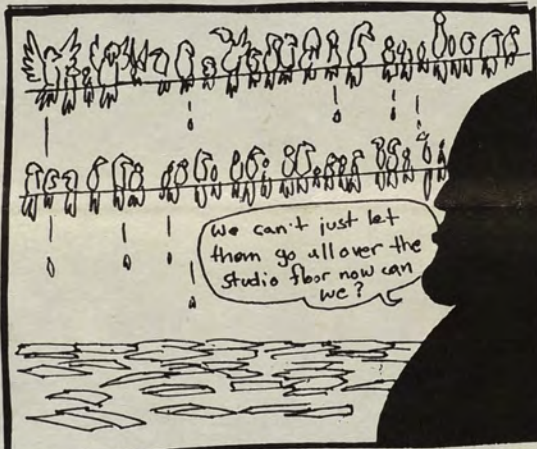 We can't just let
them go all over the
studio floor now can
we?